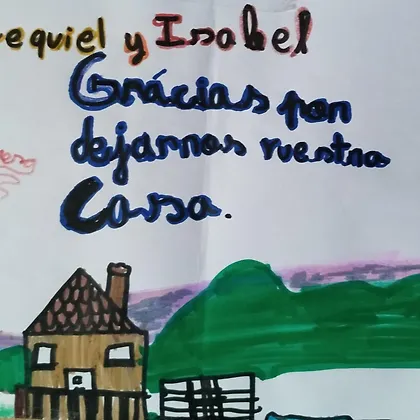 equiel y Isabel
Grácias por
dejarnos vuestra
Casa.